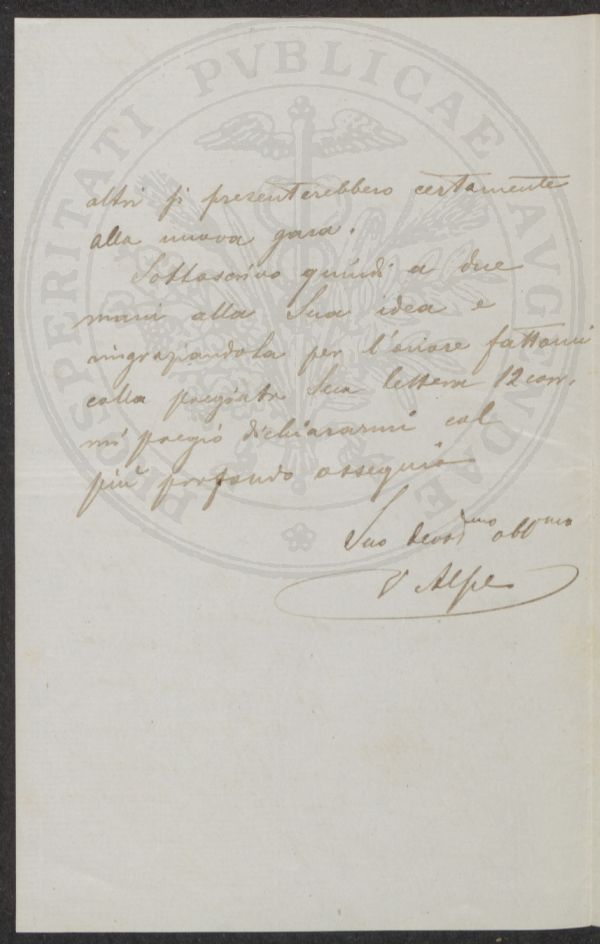 PROSPERITATI PVBLICAE AVGENDAE
altri si presenterebbero certamente
alla nuova gara.
Sottoscrivo quindi a due
mani alla Sua idea e
ringraziandola per l'onore fattomi
colla pregiata Sua lettera 12 corr.
mi pregio dichiararmi col
più profondo ossequio
Suo devot.mo obb.mo
V Alpe